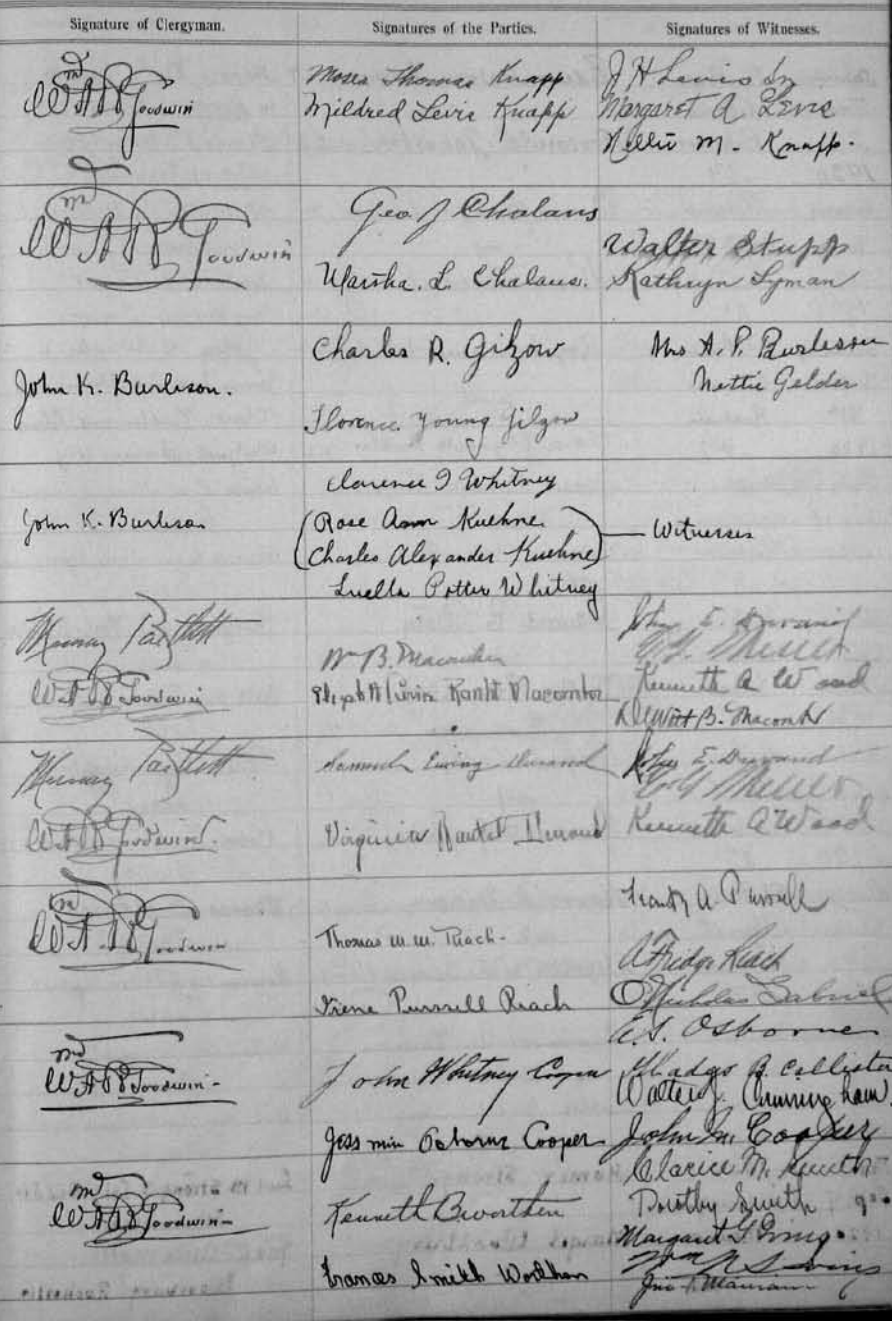 Signature of Clergyman. Signatures of the Parties. Signatures of Witnesses.
WAR Goodwin
Moses Thomas Knapp
Mildred Levis Knapp
J H Levis
Margaret A Levis
Nellie M. Knapp.
WAR Goodwin
Geo J Chalaus
Martha. L. Chalaus.
Walter Stupp
Kathryn Lyman
John K. Burleson.
Charles R. Gilzow
Florence Young Gilzow
Mrs A. P. Burleson
Nettie Gelder
John K. Burleson
Clarence I Whitney
Rose Ann Kuehne
Charles Alexander Kuehne
Luella Potter Whitney
Witnesses
Murray Bartlett
WAR Goodwin
W B. Macomber
Macomber
E. Durand
Kenneth A Wood
DeWitt B. Macomber
Murray Bartlett
WAR Goodwin
Samuel Ewing Durand
Virginia Durand
E. Durand
Kenneth A Wood
WAR Goodwin
Thomas M. M. Riach
Irene Purssell Riach
A. Purssell
Riach
Nicholas Gabriel
WAR Goodwin
John Whitney Cooper
Jessmin Osborne Cooper
A.S. Osborne
Gladys B. Collister
Walter J. Cunningham
John M. Cooper
WAR Goodwin
Kenneth B Worthen
Frances Smith Worthen
Clarice M. Smith
Dorothy Smith
Margaret G Irving
Wm N Irving